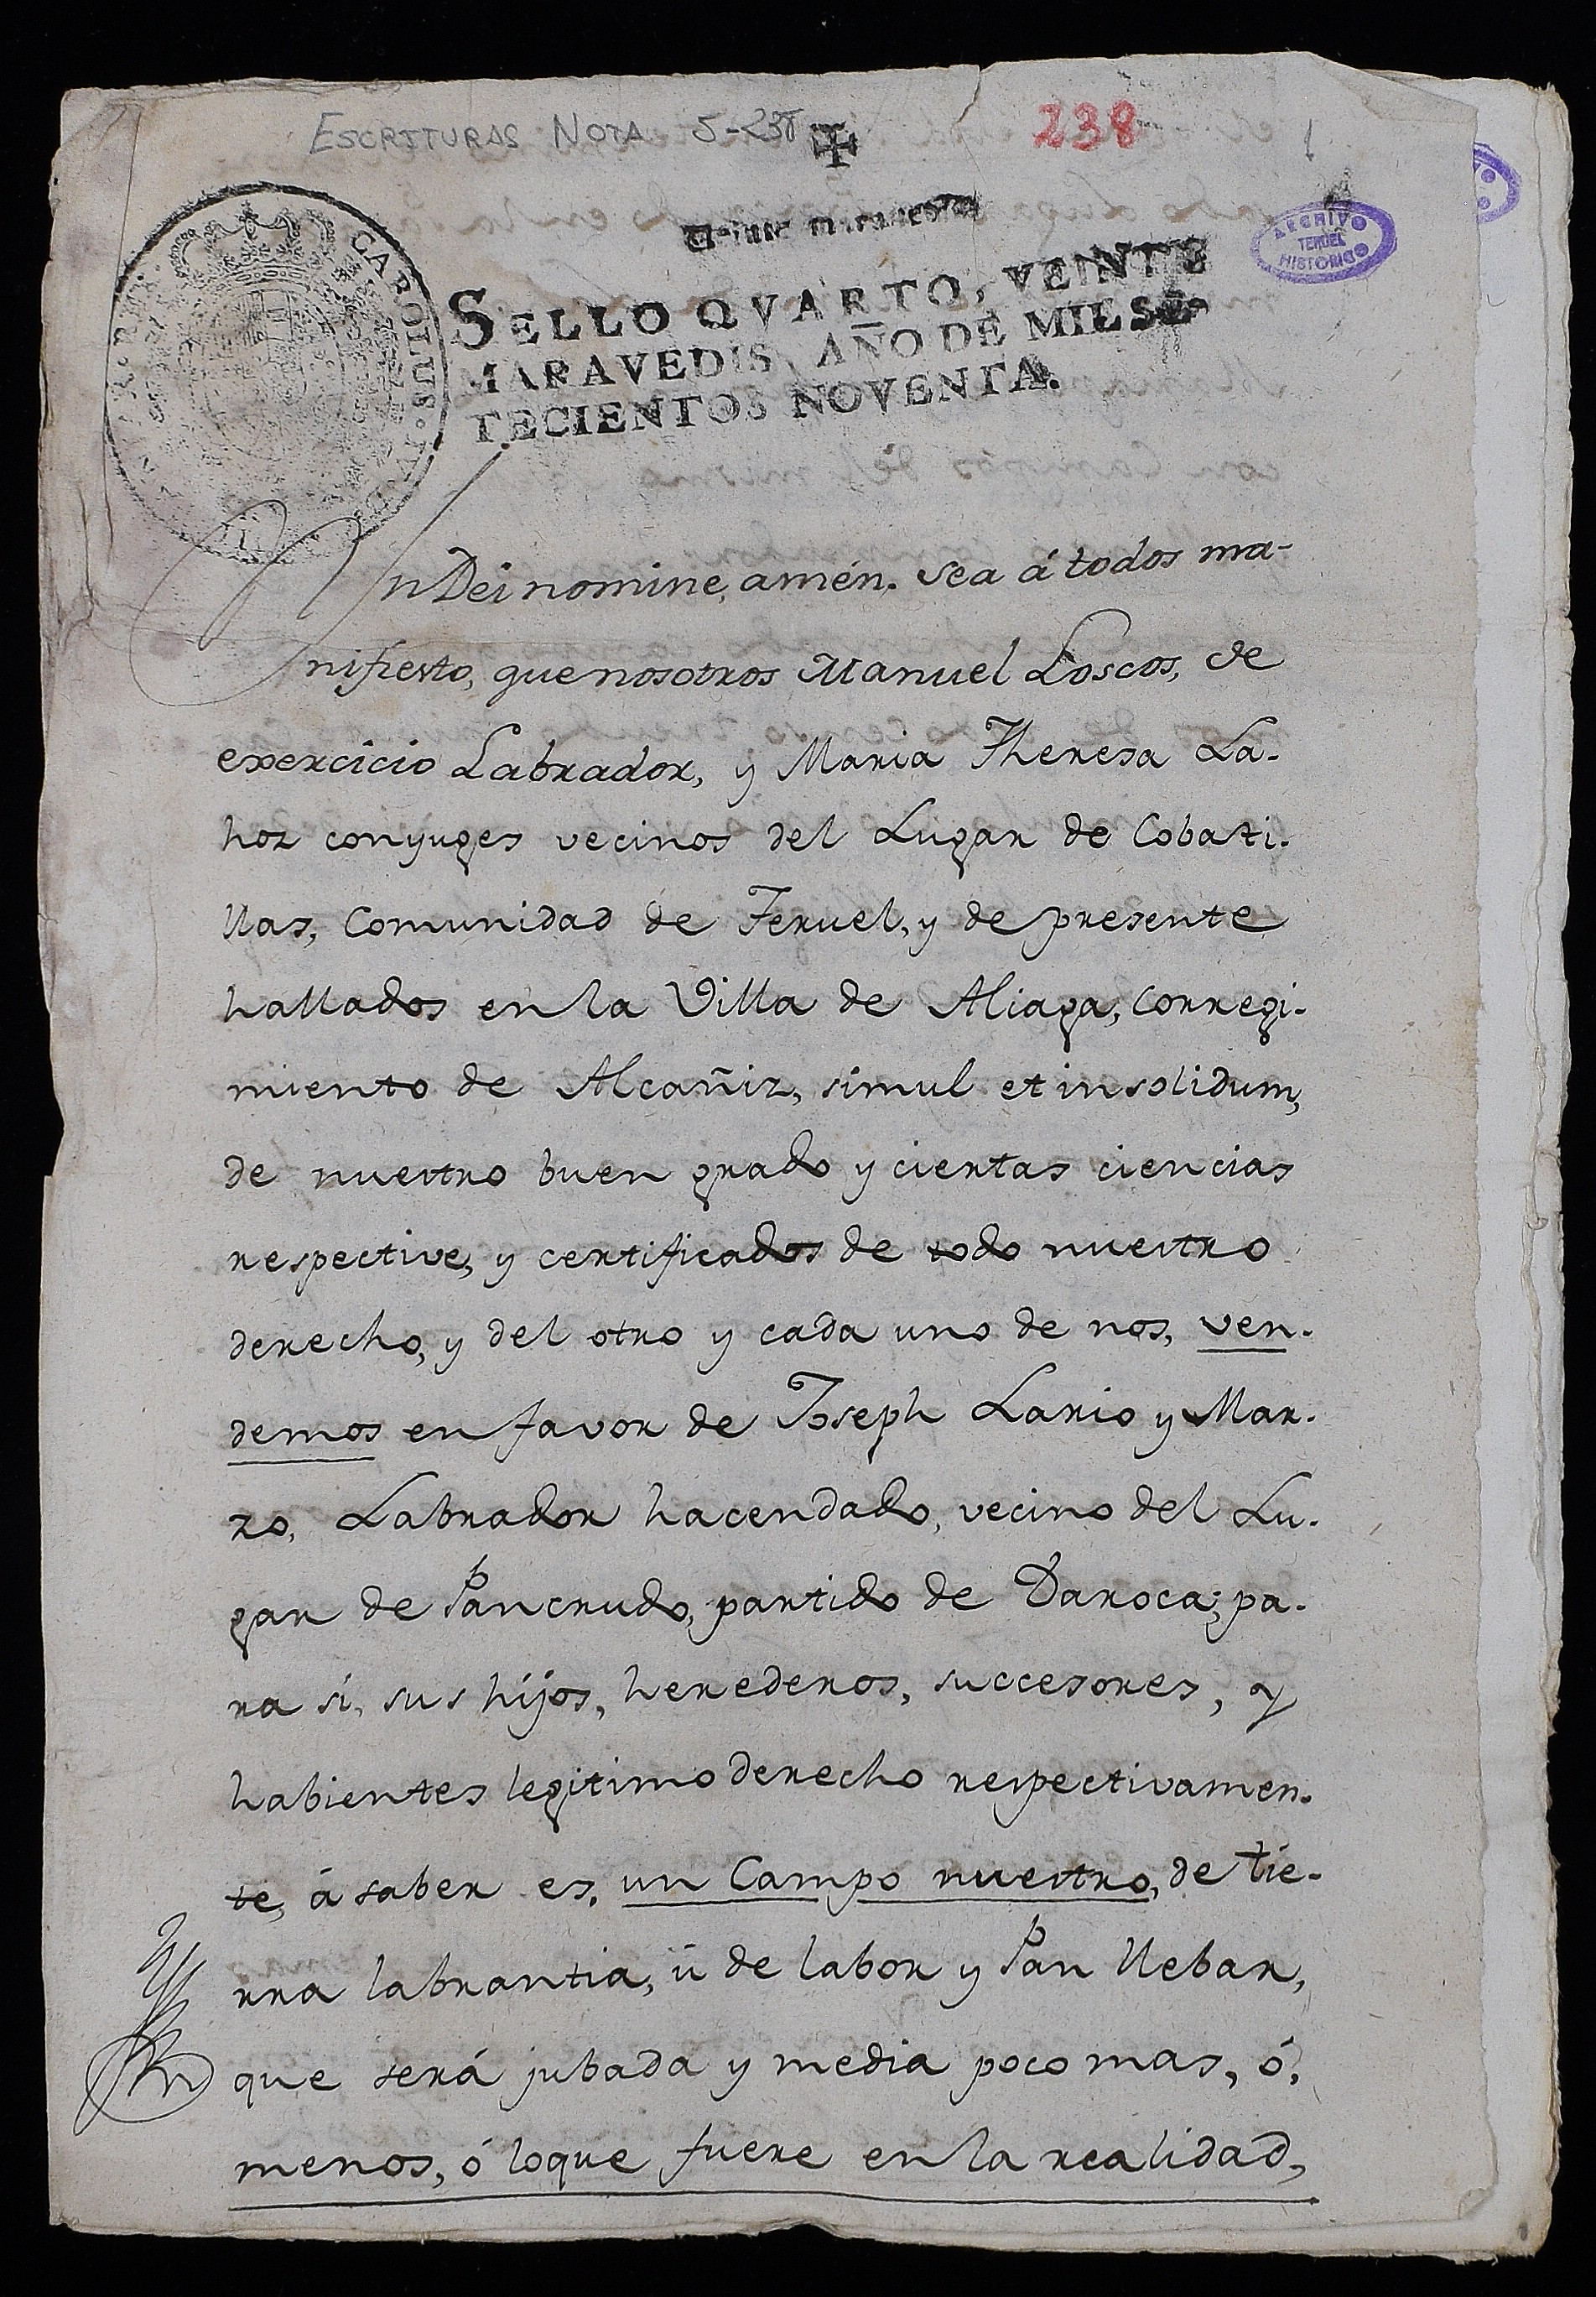 ESCRITURAS NOTA 5-238
238
1
ARCHIVO
TERUEL
HISTORICO
CAROLUS
Veinte maravedis
SELLO QVARTO, VEINTE
MARAVEDIS, AÑO DE MIL SE
TECIENTOS NOVENTA.
In Dei nomine, amén. Sea á todos ma-
nifiesto, que nosotros Manuel Loscos, de
exercicio Labrador, y Maria Theresa La-
hoz conyuges vecinos del Lugar de Cobati-
llas, Comunidad de Teruel, y de presente
hallados en la Villa de Aliaga, Corregi-
miento de Alcañiz, simul et in solidum,
de nuestro buen grado y ciertas ciencias
respective, y certificados de todo nuestro
derecho, y del otro y cada uno de nos, ven-
demos en favor de Joseph Lario y Mar-
zo, Labrador hacendado, vecino del Lu-
gar de Pancrudo, partido de Daroca; pa-
ra si, sus hijos, herederos, successores, y
habientes legitimo derecho respectivamen-
te, á saber es, un Campo nuestro, de tie-
rra labrantia, ü de labor y Pan llebar,
que será jubada y media poco mas, ó,
menos, ó loque fuere en la realidad,